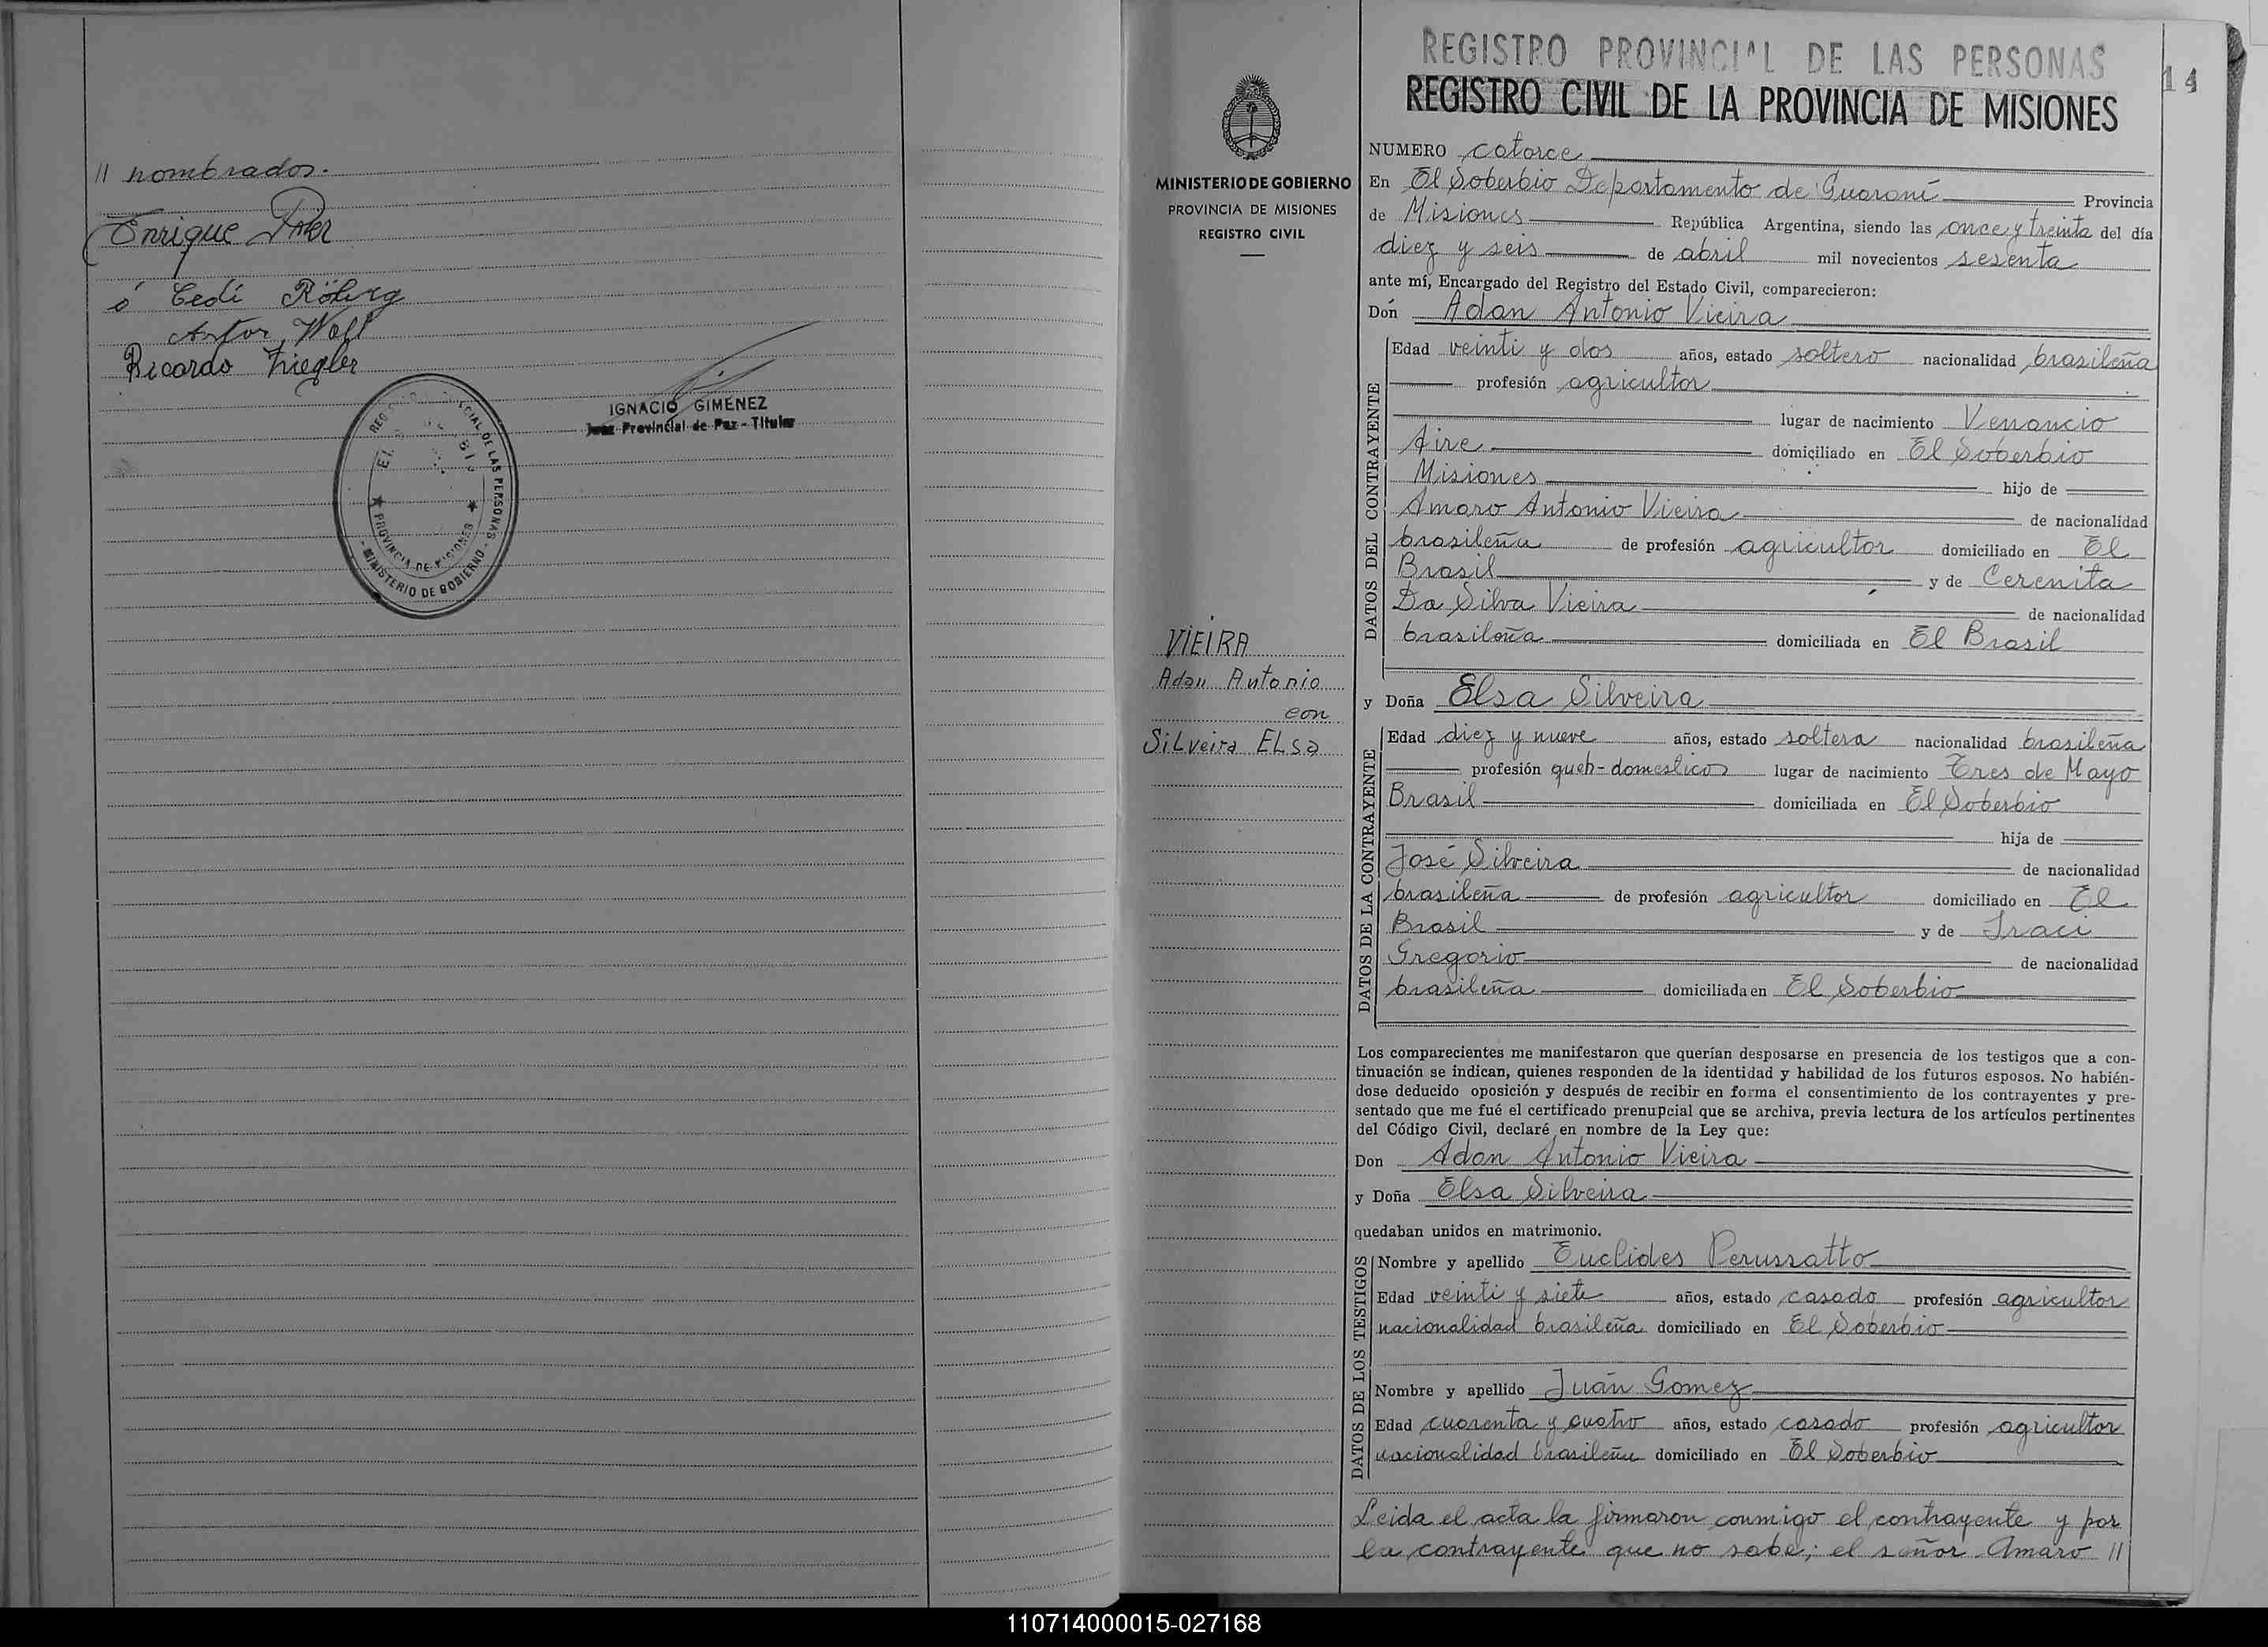 // nombrados.
Enrique
ó Cedi Röhrig
Artor Wolf
Ricardo Ziegler
IGNACIO GIMENEZ
Juez Provincial de Paz - Titular
PROVINCIA DE MISIONES
MINISTERIO DE GOBIERNO
REGISTRO PROVINCIAL DE LAS PERSONAS
REGISTRO CIVIL DE LA PROVINCIA DE MISIONES
14
MINISTERIO DE GOBIERNO
PROVINCIA DE MISIONES
REGISTRO CIVIL
VIEIRA
Adan Antonio
con
Silveira ELSa
NUMERO catorce
En El Soberbio Departamento de Guaraní Provincia
de Misiones República Argentina, siendo las once y treinta del día
diez y seis de abril mil novecientos sesenta
ante mí, Encargado del Registro del Estado Civil, comparecieron:
Don Adan Antonio Vieira
DATOS DEL CONTRAYENTE
Edad veinti y dos años, estado soltero nacionalidad brasileña
profesión agricultor
lugar de nacimiento Venancio
Aire domiciliado en El Soberbio
Misiones hijo de
Amaro Antonio Vieira de nacionalidad
brasileña de profesión agricultor domiciliado en El
Brasil y de Cerenita
Da Silva Vieira de nacionalidad
brasileña domiciliada en El Brasil
y Doña Elsa Silveira
DATOS DE LA CONTRAYENTE
Edad diez y nueve años, estado soltera nacionalidad brasileña
profesión queh-domesticos lugar de nacimiento Tres de Mayo
Brasil domiciliada en El Soberbio
hija de
José Silveira de nacionalidad
brasileña de profesión agricultor domiciliado en El
Brasil y de Iraci
Gregorio de nacionalidad
brasileña domiciliada en El Soberbio
Los comparecientes me manifestaron que querían desposarse en presencia de los testigos que a con-
tinuación se indican, quienes responden de la identidad y habilidad de los futuros esposos. No habién-
dose deducido oposición y después de recibir en forma el consentimiento de los contrayentes y pre-
sentado que me fué el certificado prenupcial que se archiva, previa lectura de los artículos pertinentes
del Código Civil, declaré en nombre de la Ley que:
Don Adan Antonio Vieira
y Doña Elsa Silveira
quedaban unidos en matrimonio.
DATOS DE LOS TESTIGOS
Nombre y apellido Euclides Perussatto
Edad veinti y siete años, estado casado profesión agricultor
nacionalidad brasileña domiciliado en El Soberbio
Nombre y apellido Juan Gomez
Edad cuarenta y cuatro años, estado casado profesión agricultor
nacionalidad brasileña domiciliado en El Soberbio
Leida el acta la firmaron conmigo el contrayente y por
la contrayente que no sabe; el señor Amaro //
110714000015-027168